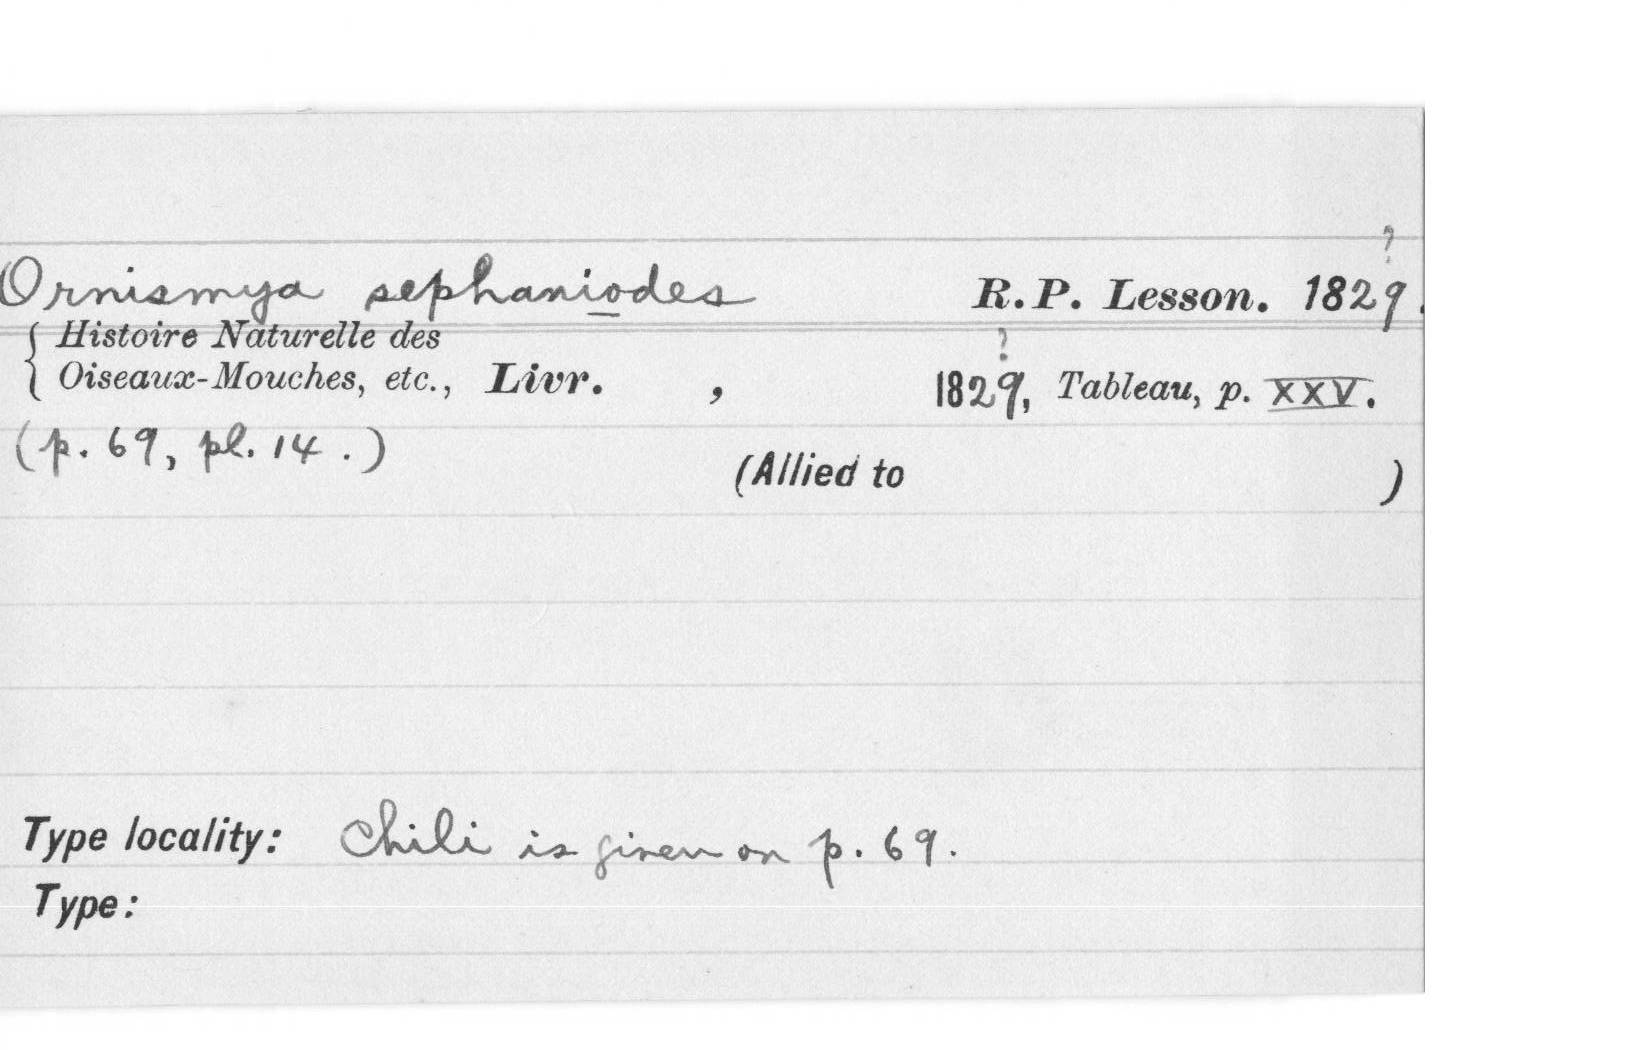 ?
Ornismya sephaniodes R.P. Lesson. 1829.
{ Histoire Naturelle des
?
{ Oiseaux-Mouches, etc., Livr. , 1829, Tableau, p. XXV.
(p. 69, pl. 14.)
(Allied to )
Type locality: Chili is given on p. 69.
Type: